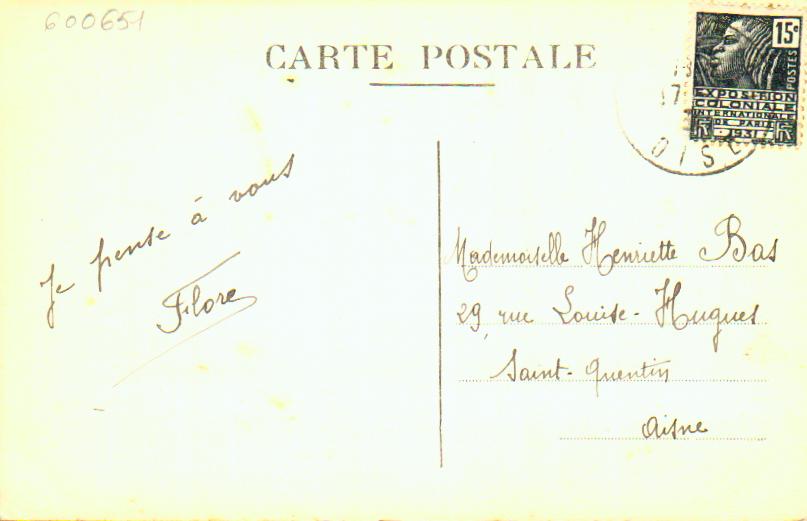 600651
CARTE POSTALE
15c
POSTES
EXPOSITION
COLONIALE
INTERNATIONALE
DE PARIS
1931
17
OISE
Je pense à vous
Flore
Mademoiselle Henriette Bas
29, rue Louise-Hugues
Saint-Quentin
Aisne